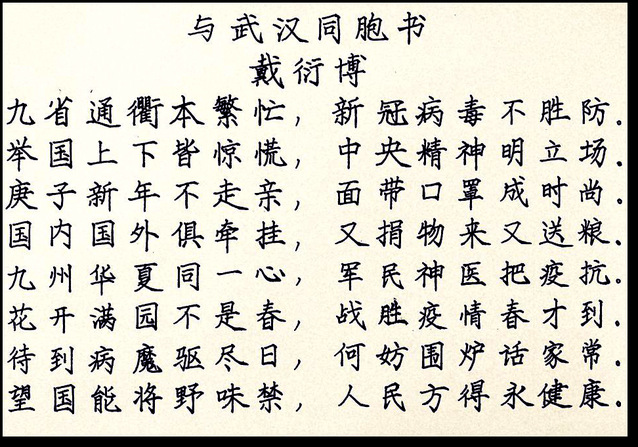 与武汉同胞书
戴衍博
九省通衢本繁忙,新冠病毒不胜防.
举国上下皆惊慌,中央精神明立场.
庚子新年不走亲,面带口罩成时尚.
国内国外俱牵挂,又捐物来又送粮.
九州华夏同一心,军民神医把疫抗.
花开满园不是春,战胜疫情春才到.
待到病魔驱尽日,何妨围炉话家常.
望国能将野味禁,人民方得永健康.